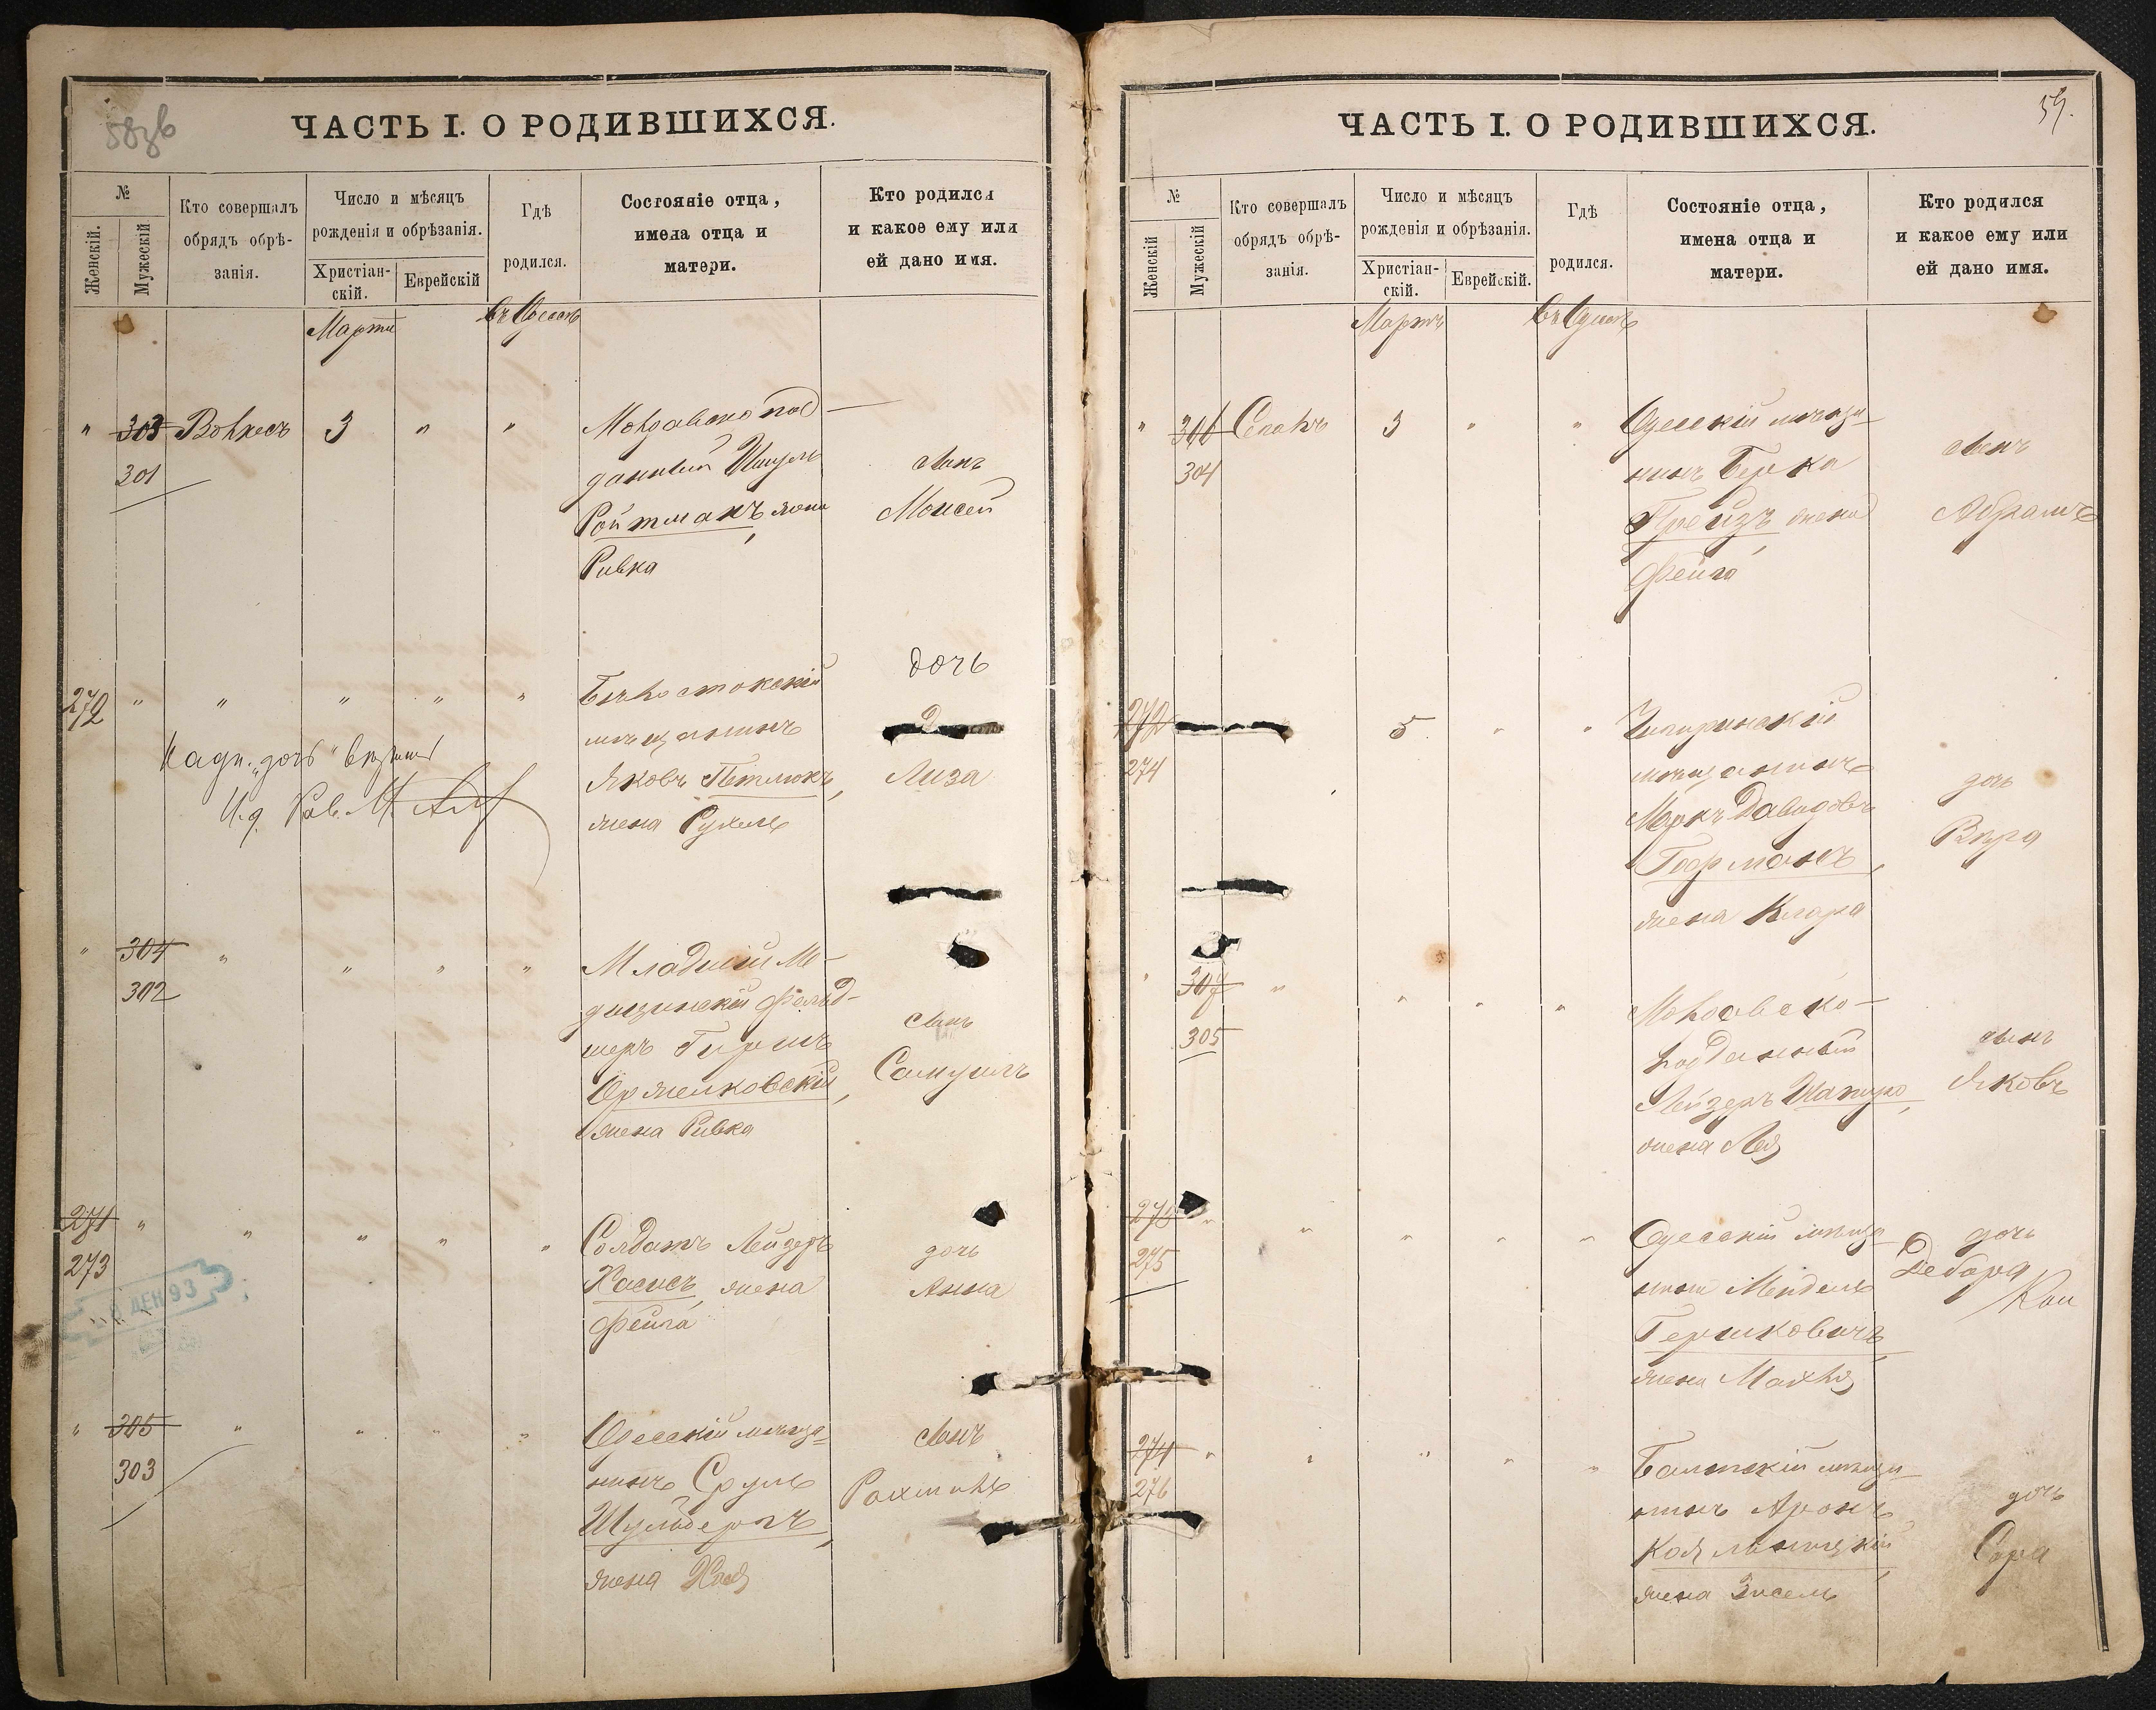 58об
ЧАСТЬ I. О РОДИВШИХСЯ.
№
Женскій.
Мужескій
Кто совершалъ
обрядъ обрѣ-
занія.
Число и мѣсяцъ
рожденія и обрѣзанія.
Христіан-
скій.
Еврейскій
Гдѣ
родился.
Состояніе отца,
имена отца и
матери.
Кто родился
и какое ему или
ей дано имя.
Марта
въ Одессѣ
" 303 3 " " Молдавско под-
301
данный
Ройтманъ, жена
Ривка
сынъ
Моисей
272 " " " " " Бѣлостокскій
мѣщанинъ
Яковъ Петлюкъ,
жена Рухель
дочь
Лиза
Надп. "дочь"
И.д. Рав. М.
" 304 " " " " Младшій Ме-
302
дицинскій фельд-
шеръ Гершъ
жена Ривка
сынъ
Самуилъ
271 " " " " " Солдатъ Лейзеръ
273
Хасисъ, жена
Фейга
дочь
Анна
ДЕК 93
" 305 " " " " Одесскій мѣща-
303
нинъ Сруль
жена Хая
сынъ
Рахмиль
ЧАСТЬ I. О РОДИВШИХСЯ.
59.
№
Женскій
Мужескій
Кто совершалъ
обрядъ обрѣ-
занія.
Число и мѣсяцъ
рожденія и обрѣзанія.
Христіан-
скій.
Еврейскій.
Гдѣ
родился.
Состояніе отца,
имена отца и
матери.
Кто родился
и какое ему или
ей дано имя.
Мартъ
въ Одессѣ
" 306 3 " " Одесскій мѣща-
304
нинъ Берка
жена
Фейга
сынъ
Абрамъ
272 5 " " Чигиринскій
274
мѣщанинъ
Маркъ Давидовъ
Гофманъ,
жена Клара
дочь
Вѣра
" 307 " " " " Молдавско-
305
подданный
Лейзеръ Шапиро,
жена Лея
сынъ
Яковъ
273 " " " " " Одесскій мѣща-
275
нинъ Мендель
Гершковичъ,
жена Махля
дочь
Дебора
274 " " " " " Балтскій мѣща-
276
нинъ Аронъ
жена
дочь
Сара